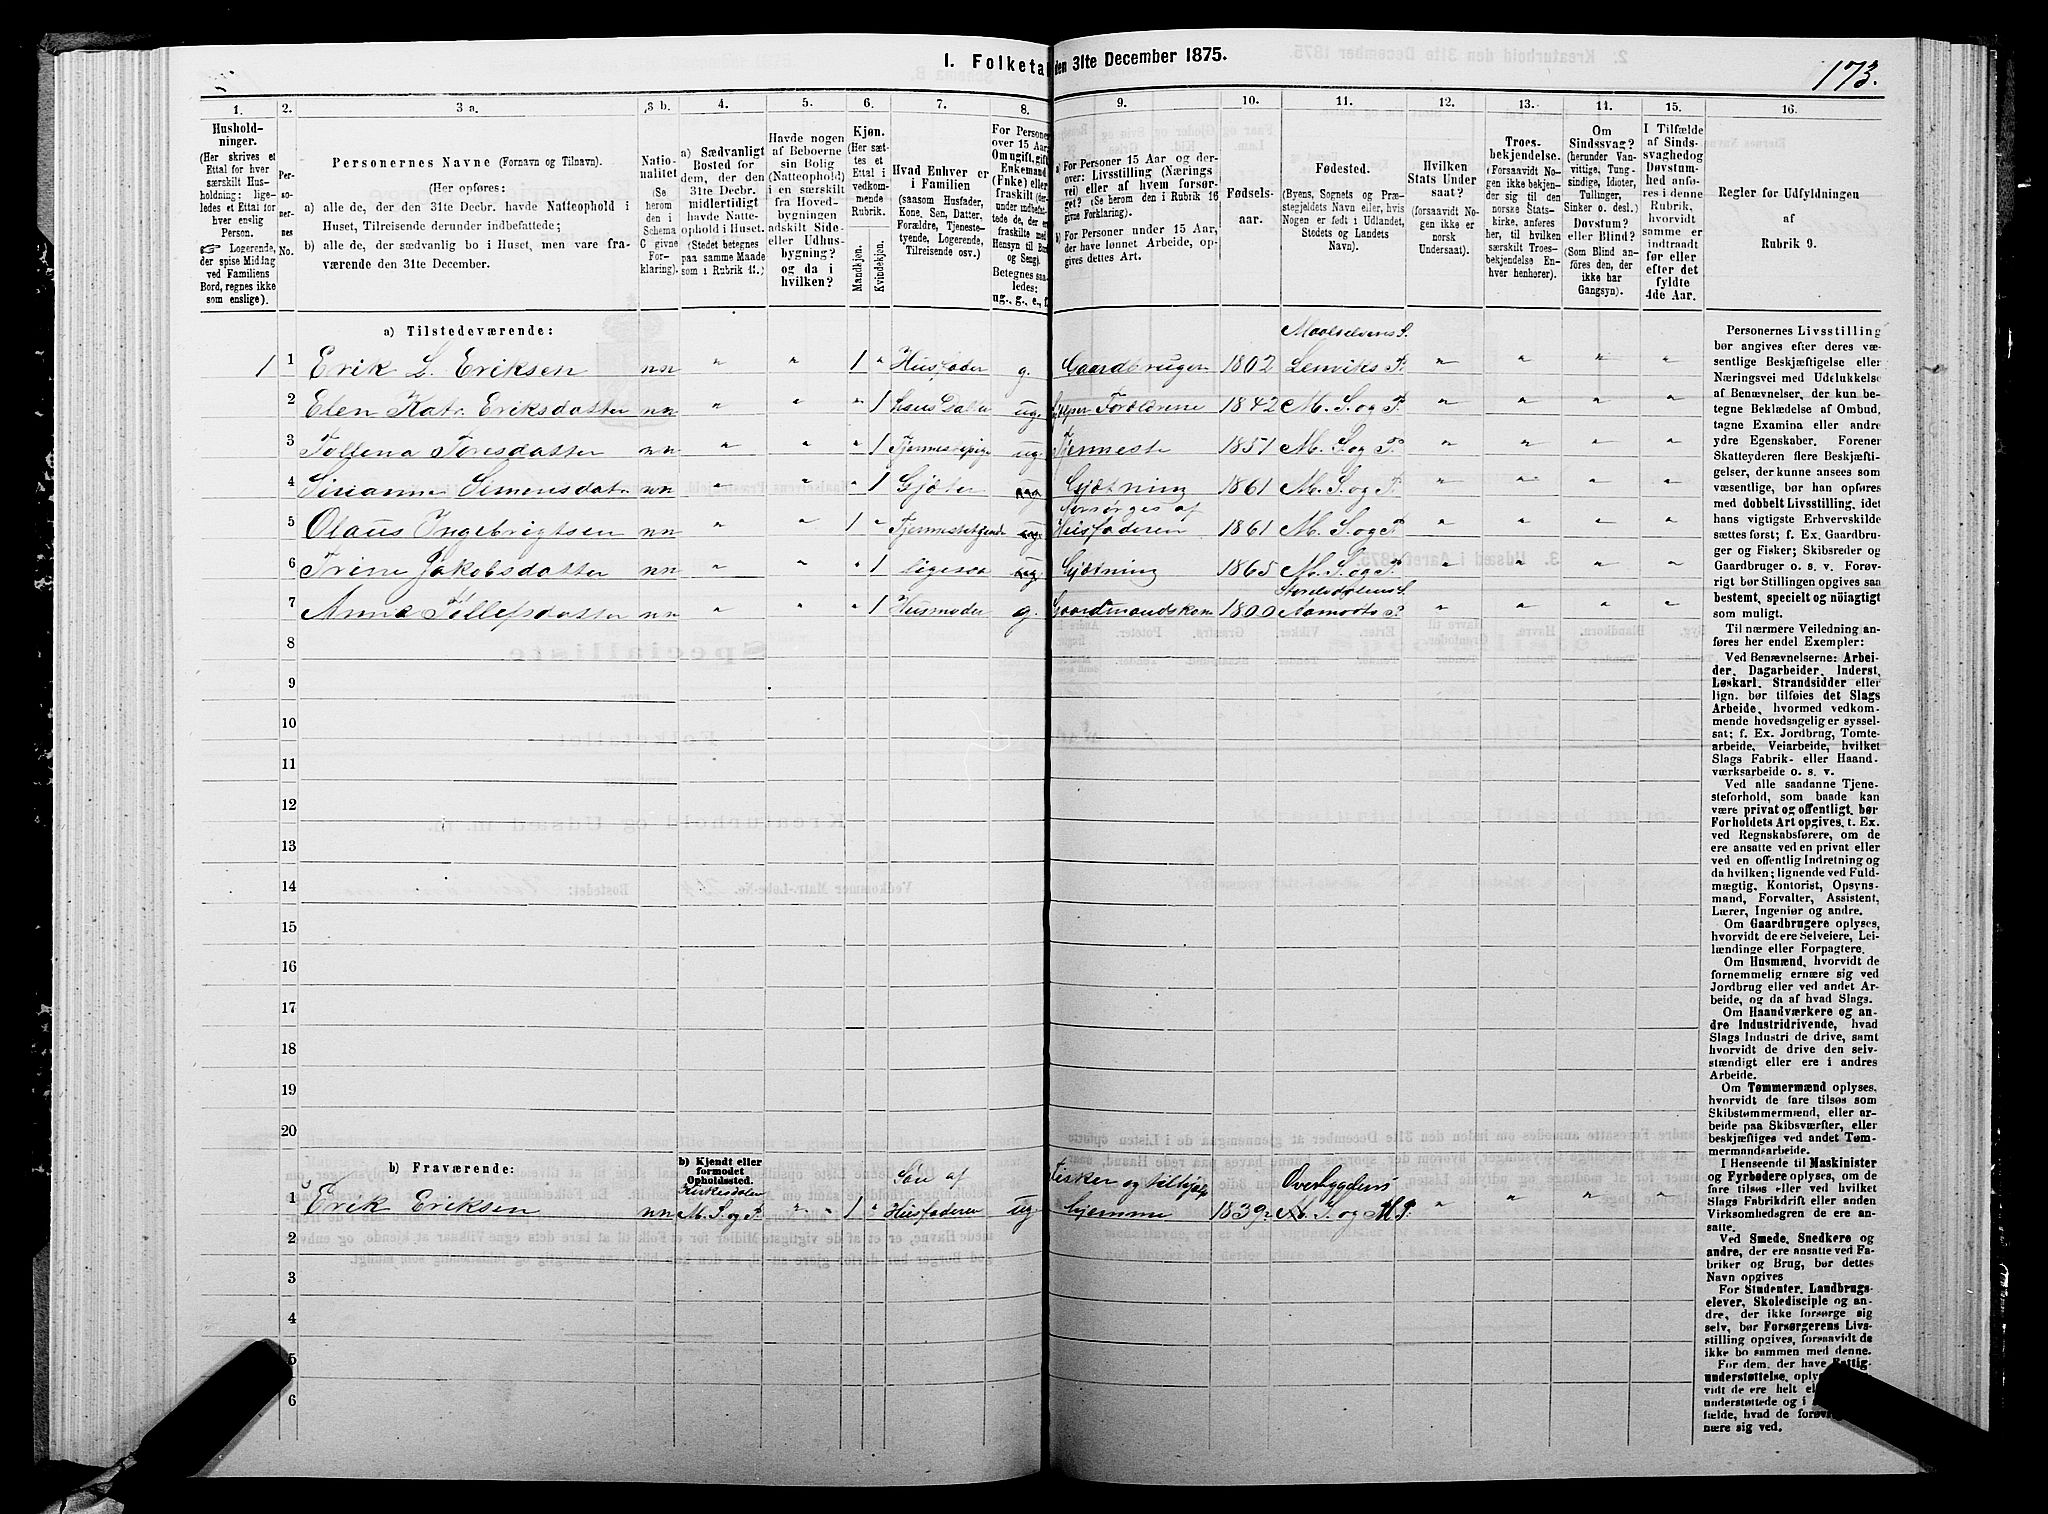 I. Folketal den 31te December 1875.
173.
1.
Hushold-
ninger.
(Her skrives et
Ettal for hver
særskilt Hus-
holdning; lige-
ledes et Ettal for
hver enlig
Person.
☞ Logerende,
der spise Middag
ved Familiens
Bord, regnes ikke
som enslige).
2.
Personernes No.
3 a.
Personernes Navne (Fornavn og Tilnavn).
(Her opføres:
a) alle de, der den 31te Decbr. havde Natteophold i
Huset, Tilreisende derunder indbefattede;
b) alle de, der sædvanlig bo i Huset, men vare fra-
værende den 31te December.
3 b.
Natio-
nalitet
(Se
herom
den i
Schema
C givne
For-
klaring).
4.
a) Sædvanligt
Bosted for
dem, der den
31te Decbr.
midlertidigt
havde Natte-
ophold i Huset.
(Stedet betegnes
paa samme Maade
som i Rubrik 11.)
5.
Havde nogen
af Beboerne
sin Bolig
(Natteophold)
i en særskilt
fra Hoved-
bygningen
adskilt Side-
eller Udhus-
bygning?
og da i
hvilken?
6.
Kjøn.
(Her sæt-
tes et
Ettal i
vedkom-
mende
Rubrik.
Mandkjøn.
Kvindekjøn.
7.
Hvad Enhver er
i Familien
(saasom Husfader,
Kone, Søn, Datter,
Forældre, Tjeneste-
tyende, Logerende,
Tilreisende osv.)
8.
For Personer
over 15 Aar:
Om ugift, gift,
Enkemand
(Enke) eller
fraskilt
Betegnes saa-
ledes:
ug., g., e., f.
9.
a) For Personer 15 Aar og der-
over: Livsstilling (Nærings
vei) eller af hvem forsør-
get? (Se herom den i Rubrik 16
givne Forklaring).
b) For Personer under 15 Aar,
der have lønnet Arbeide, op-
gives dettes Art.
10.
Fødsels-
aar.
11.
Fødested.
(Byens, Sognets og Præ-
stegjeldets Navn eller, hvis
Nogen er født i Udlandet,
Stedets og Landets
Navn).
12.
Hvilken
Stats Under
saat?
(forsaavidt No-
gen ikke er
norsk
Undersaat).
13.
Troes-
bekjendelse.
(Forsaavidt No-
gen ikke bekjen-
der sig til den
norske Stats-
kirke, anføres
her, til hvilken
særskilt Troes-
bekjendelse En-
hver henhorer).
14.
Om
Sindssvag?
(herunder Van-
vittige, Tung-
sindige, Idioter,
Tullinger,
Sinker o. desl.)
Døvstum?
eller Blind?
(Som Blind an-
føres den, der
ikke har
Gangsyn).
15.
I Tilfælde
af Sinds-
svaghedog
Døvstum-
hed anfø-
res i denne
Rubrik,
hvorvidt
samme er
indtraadt
før eller
efter det
fyldte
4de Aar.
16.
Regler for Udfyldningen
af
Rubrik 9.
a) Tilstedeværende:
1 1 Erik L. Eriksen nn " " 1 " Husfader g. Gaardbruger 1802 Maalselvens S. Lenviks P. " " " "
2 Elen Katr. Eriksdatter nn " " " 1 hans Datter ug. hjelper Forældrene 1842 M. S. og P. " " " "
3 Tollena Toresdatter nn " " " 1 Tjennestepige ug. Tjenneste 1851 M. S. og P. " " " "
4 Sirianna Simensdat. nn " " " 1 Gjæter Gjætning 1861 M. S. og P. " " " "
5 Olaus Ingebrigtsen nn " " 1 " Tjennestetyende ug. forsørges af Husfaderen 1861 M. S. og P. " " " "
6 Trine Jakobsdatter nn " " " 1 ligesaa ug. Gjætning 1865 M. S. og P. " " " "
7 Anna Tollefsdatter nn " " " 1 Husmoder g. Gaardmandskone 1800 Storelvdalens S. Aamoots P. " " " "
8
9
10
11
12
13
14
15
16
17
18
19
20
b) Fraværende:
b) Kjendt eller
formodet
Opholdssted.
1 Erik Eriksen nn Kirkesdalen M. S. og P. " " 1 " Søn af Husfaderen ug. Fisker og hjemme 1839 Overbygdens S. og M. P. " " " "
2
3
4
5
6
Personernes Livsstilling
bør angives efter deres væ-
sentlige Beskjæftigelse eller
Næringsvei med Udelukkelse
af Benævnelser, der kun be-
tegne Beklædelse af Ombud,
tagne Examina eller andre
ydre Egenskaber. Forener
Skatteyderen flere Beskjæfti-
gelser, der kunne ansees som
væsentlige, bør han opføres
med dobbelt Livsstilling, idet
hans vigtigste Erhvervskilde
sættes først; f. Ex. Gaardbru-
ger og Fisker; Skibsreder og
Gaardbruger o. s. v. Forøv-
rigt bør Stillingen opgives saa
bestemt, specielt og nöiagtigt
som muligt.
Til nærmere Veiledning an-
føres her endel Exempler:
Ved Benævnelserne: Arbei-
der, Dagarbeider, Inderst,
Løskarl, Strandsidder eller
lign. bør tilføies det Slags
Arbeide, hvormed vedkom-
mende hovedsagelig er syssel-
sat; f. Ex. Jordbrug, Tomte-
arbeide, Veiarbeide, hvilket
Slags Fabrik- eller Haand-
værksarbeide o. s. v.
Ved alle saadanne Tjene-
steforhold, som baade kan
være privat og offentligt, bør
Forholdets Art opgives, t. Ex.
ved Regnskabsførere, om de
ere ansatte ved en privat eller
ved en offentlig Indretning og
da hvilken; lignende ved Fuld-
mægtig, Kontorist, Opsyns-
mand, Forvalter, Assistent,
Lærer, Ingeniør og andre.
Om Gaardbrugere oplyses,
hvorvidt de ere Selveiere, Lei-
lændinge eller Forpagtere.
Om Husmænd, hvorvidt de
fornemmelig ernære sig ved
Jordbrug eller ved andet Ar-
beide, og da af hvad Slags.
Om Haandværkere og an-
dre Industridrivende, hvad
Slags Industri de drive, samt
hvorvidt de drive den selv-
stændigt eller ere i andres
Arbeide.
Om Tømmermænd oplyses,
hvorvidt de fare tilsøs som
Skibstømmermænd, eller ar-
beide paa Skibsværfter, eller
beskjæftiges ved andet Tøm-
mermandsarbeide.
I Henseende til Maskinister
og Fyrbødere oplyses, om de
fare tilsøs eller ved hvilket
Slags Fabrikdrift eller anden
Virksomhedsgren de ere an-
satte.
Ved Smede, Snedkere og
andre, der ere ansatte ved Fa-
briker og Brug, bør dettes
Navn opgives
For Studenter, Landbrugs-
elever, Skoledisciple og an-
dre, der ikke forsørge sig
selv, bør Forsørgerens Livs-
stilling opgives, forsaavidt de
ikke bo sammen med denne.
For dem, der have Fattig-
understøttelse, oplyses
vidt de ere helt
understøttede og i
fælde, hvad de forøv
nære sig ved.